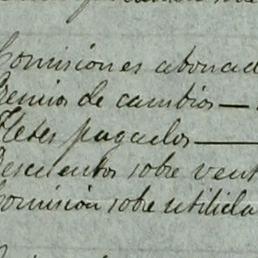 Comisiones abonad
Premios de cambios —
Fletes pagados —
Descuentos sobre vent
Comisión sobre utilida